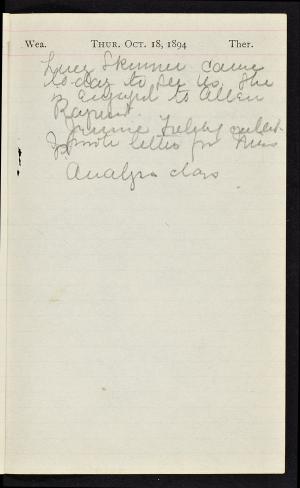 Wea. THUR. OCT. 18, 1894 Ther.
Lucy Skinner came
to-day to see us. She
is Engaged to Allen
Jennie called.
wrote letter for
class